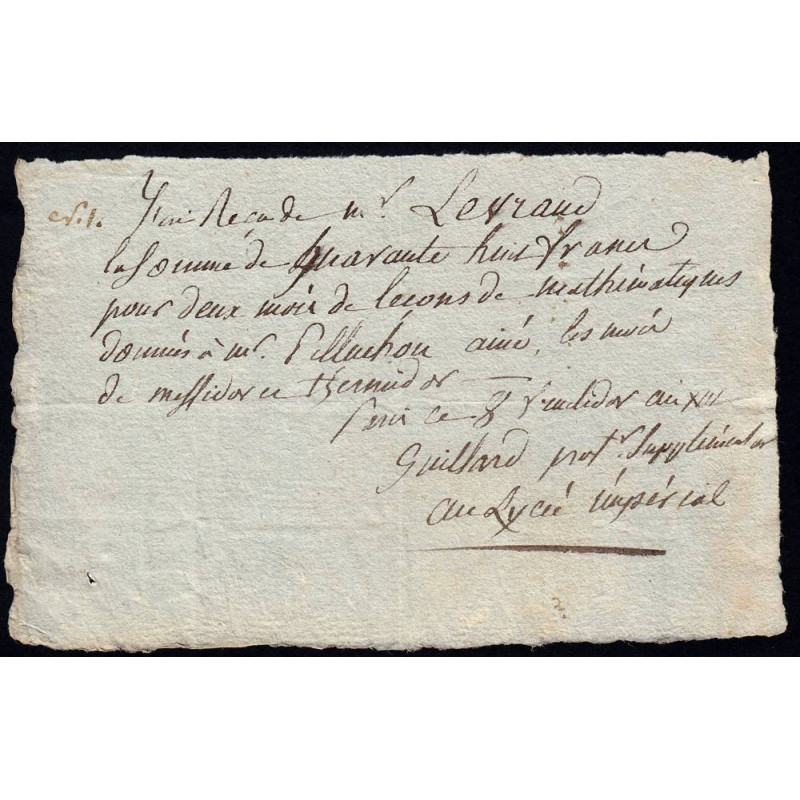 J'ai Reçu de mr. Levraud
la Somme de quarante huit francs
pour deux mois de leçons de mathématiques
données à mr. Pelluchon ainé, les mois
de messidor et thermidor
Paris ce 8 fructidor an
Guillard profr. Supplémentaire
au Lycée impérial